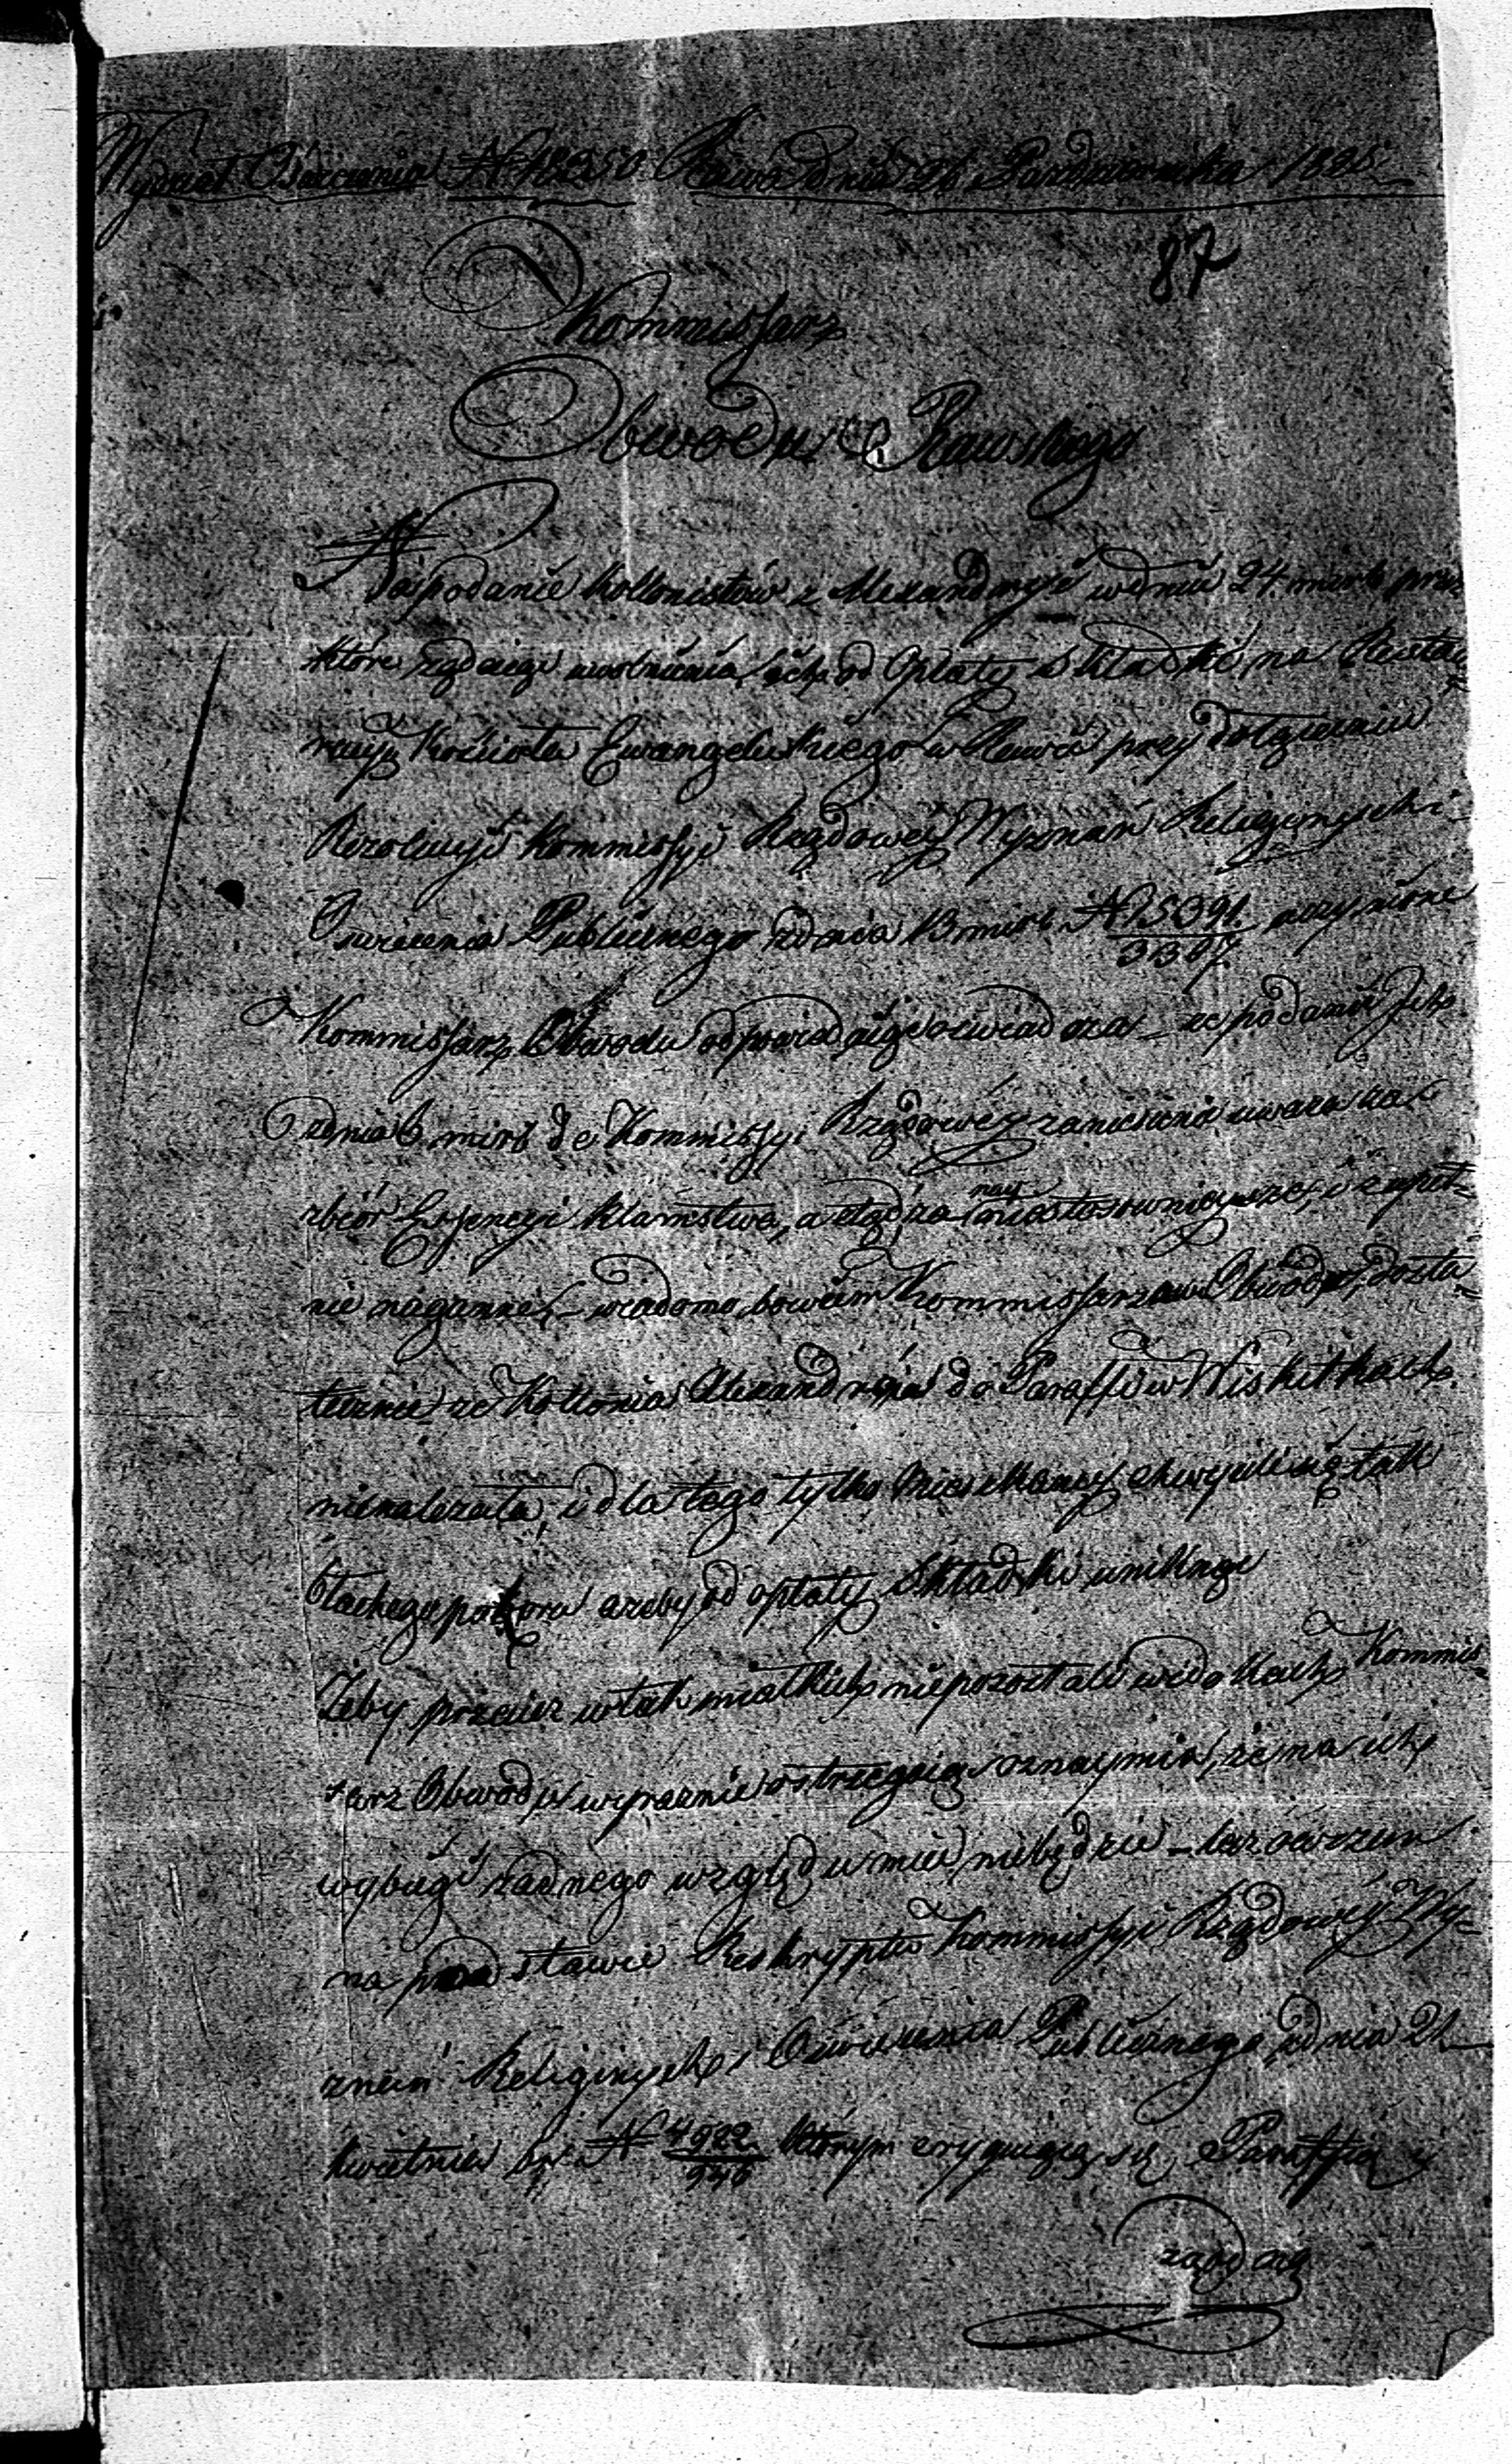 Wydział Oświecenia N 18250 Rawa dnia 26 Pazdziernika 1825
87
Kommissarz
Obwodu Rawskiego
Na podanie Kollonistów z Alexandryi w dniu 24. mies b
które żądaiąc uwolnienia ich od Opłaty Składki na Restau=
racyą Kościoła Ewangelickiego w Rawie przy dołączeniu
Rezolucyi Kommissyi Rządowey Wyznań Religiynych i
Oświecenia Publicznego z dnia 13 mies b N 15391/3307 uczynione
Kommissarz Obwodu odpowiadaiąc oswiadcza – że podanie Ich
z dnia 6 mies b do Kommissyi Rządowey zaniesione uważa za
zbiór Essencyi kłamstwa, a ztąd za nay niestosownieysze, i zupeł=
nie naganne, – wiadomo bowiem Kommissarzowi Obwodu, dosta=
tecznie że Kollonia Alexandryia do Paraffii w Wiskitkach
nienależała, i dla tego tylko Mieszkancy chwycili się tak
błachego pozoru ażeby od opłaty Składki uniknąć
Żeby przeciez w tak miałkich niepozostali widokach Kommis=
sarz Obwodu wyraznie ostrzegaiąc oznaymia, że na ich
wybiegi żadnego względu mieć niebędzie – lecz owszem
na podstawie Reskryptu Kommissyi Rządowey Wy=
znań Religiynych i Oświecenia Publicznego z dnia 21
Kwietnia br N 4922/946 którym eryguiąc się Paraffią